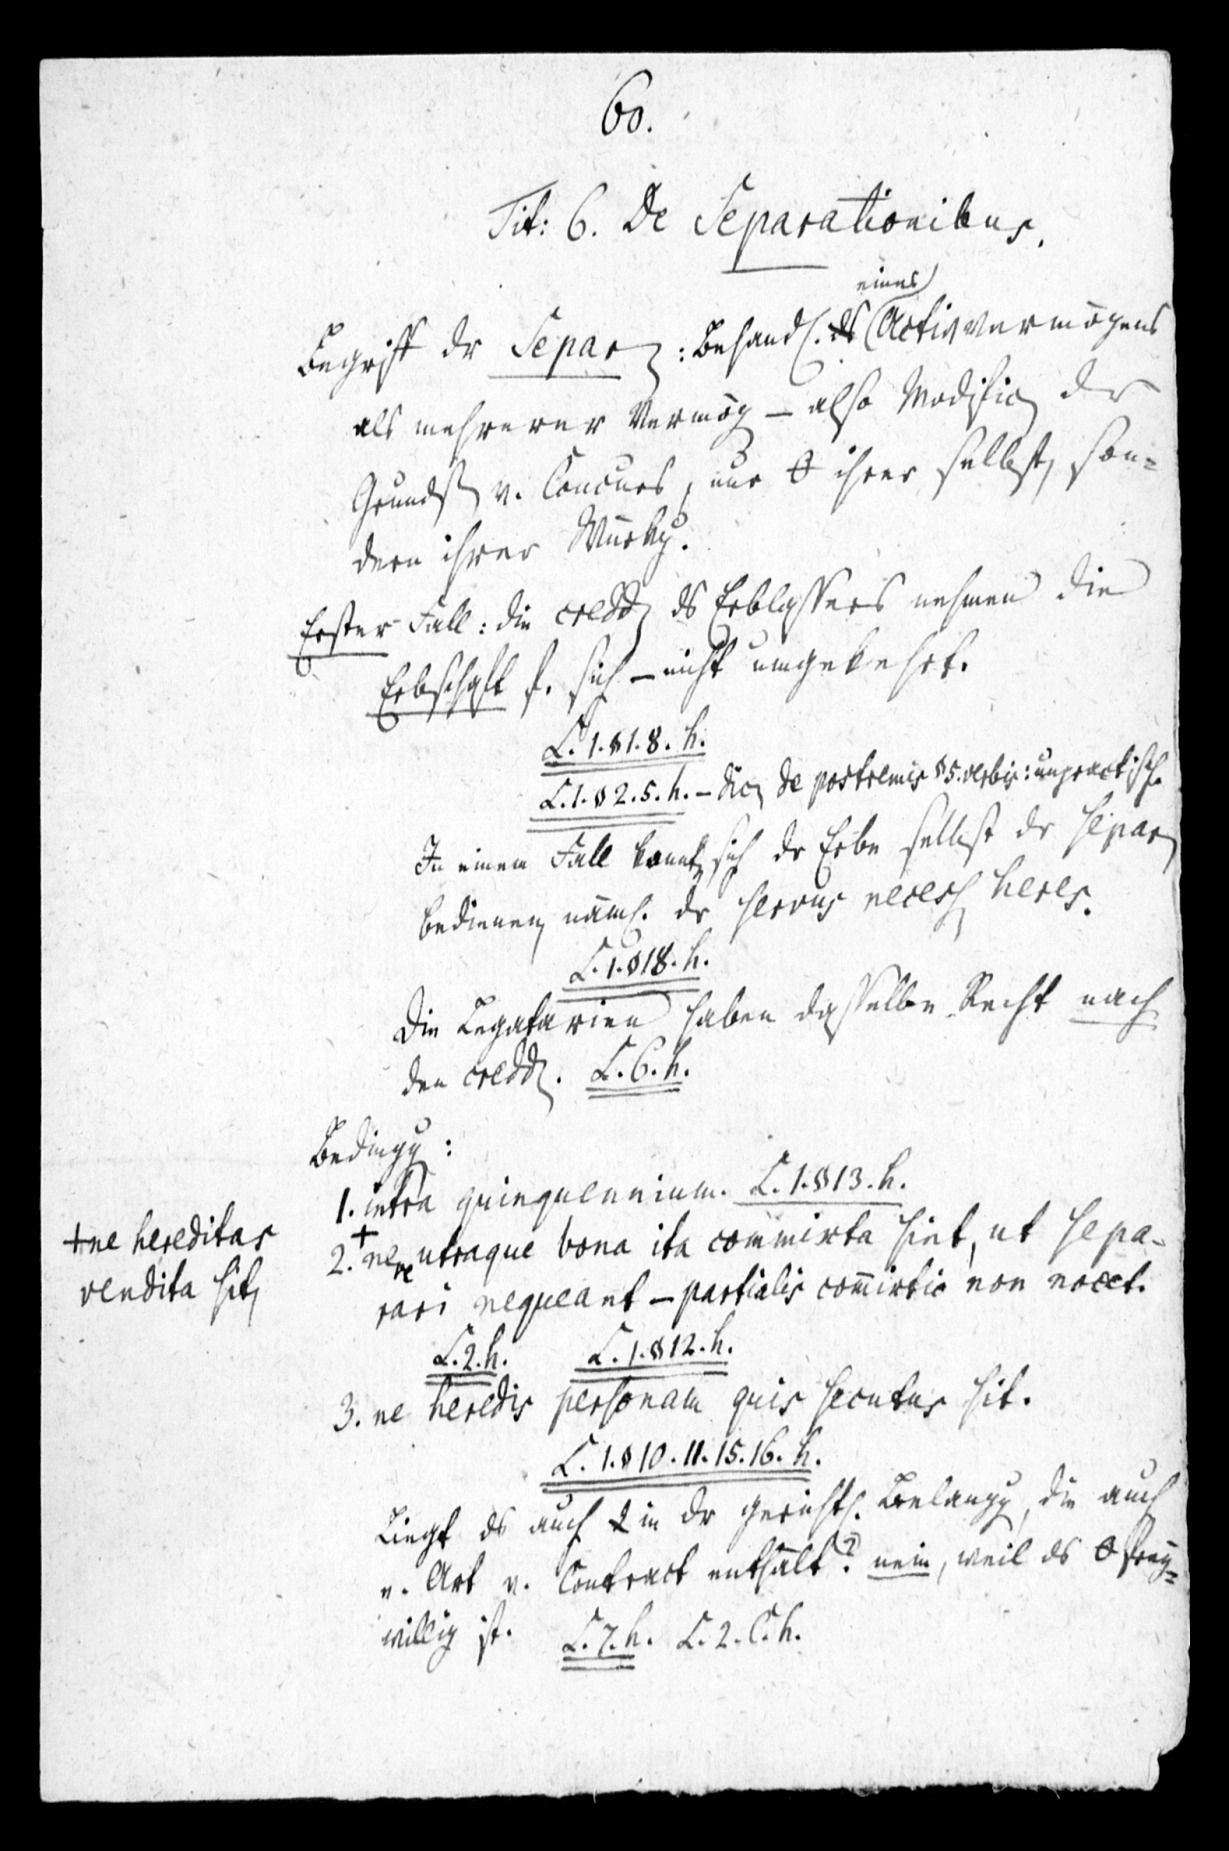 60.
Tit: 6. De Separationibus.
eines
Begriff dr Separ: Behandl. ds Activvermögens
als mehrerer Vermög – also Modific der
Grunds v. Concurs, nur ihrer selbst, son=
dern ihrer Würkg.
Erster Fall: die credd ds Erblassers nehmen die
Erbschaft f. sich – nicht umgekehrt.
L. 1. § 1. 8. h.
L. 1. § 2. 5. h. – de postremis § 5. verbis: unpractisch.
In einem Fall konnte sich dr Erbe selbst dr separ
bedienen, näml. dr servus necess heres.
L. 1. § 18. h.
Die Legatarien haben dasselbe Recht nach
den credd. L. 6. h.
Bedingg:
1. intra quinquennium. L. 1. § 13. h.
2. + neve utraque bona ita commixta sint, ut sepa-
rari nequeant – partialis com̄ixtio non nocet.
+ ne hereditas
vendita sit,
L. 2. h. L. 1. § 12. h.
3. ne heredis personam quis secutus sit.
L. 1. § 10. 11. 15. 16. h.
Liegt ds auch in dr gerichtl. Belangg, die auch
e. Art v. Contract enthält? nein, weil ds frey=
willig ist. L. 7. h. L. 2. C. h.